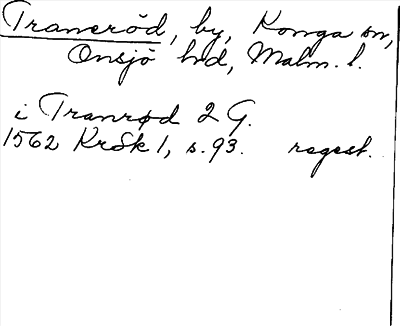 Traneröd, by, Konga sn,
Onsjö hd, Malm. l.
i Tranrød 2 G.
1562 KrSk 1, s. 93. regest.